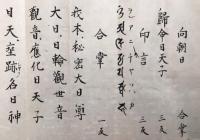 向朝日 合掌
歸命日天子 三反
印言 三反
合掌 一反
我本秘密大日尊
大日日輪觀世音
觀音應化日天子
日天垂跡名日神